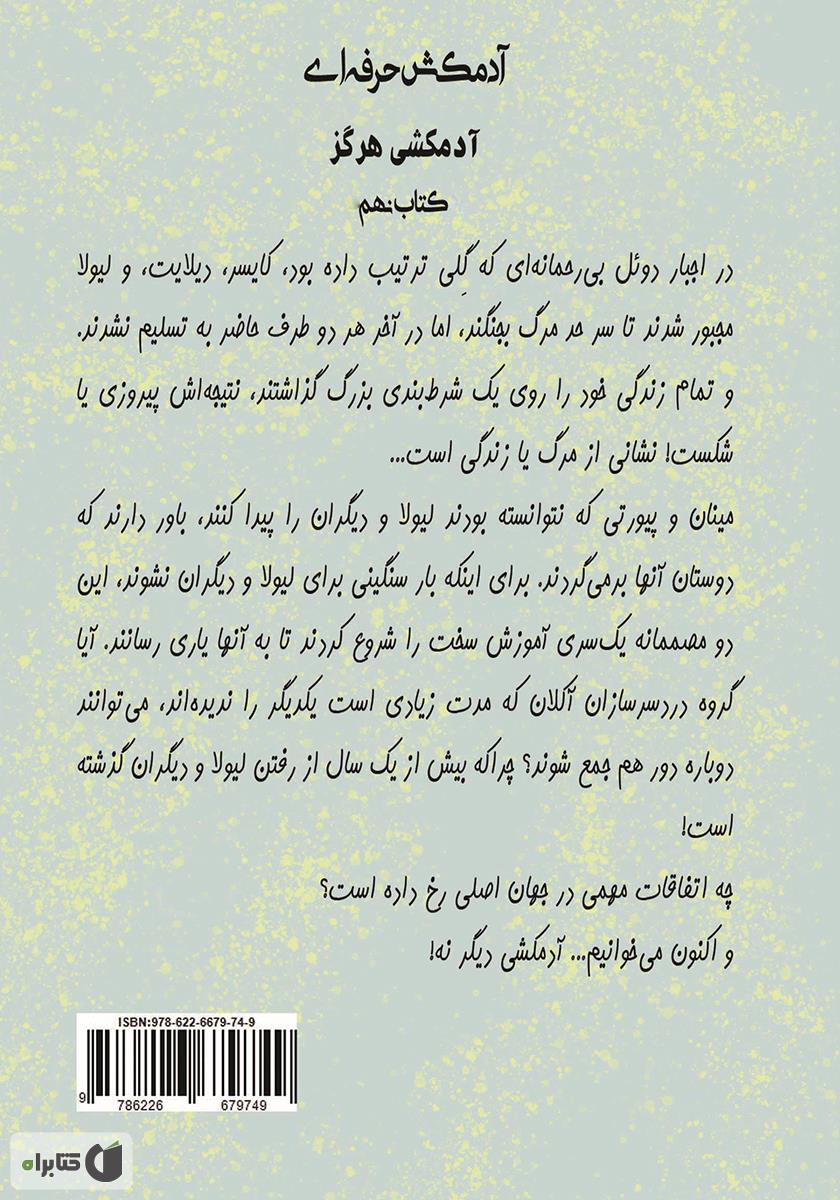 آدمکش حرفه‌ای
آدمکشی هرگز
کتاب نهم
در اجبار دوئل بی‌رحمانه‌ای که گِلی ترتیب داده بود، کایسر، دیلایت، و لیولا
مجبور شدند تا سر حد مرگ بجنگند، اما در آخر هر دو طرف حاضر به تسلیم نشدند.
و تمام زندگی خود را روی یک شرط‌بندی بزرگ گذاشتند، نتیجه‌اش پیروزی یا
شکست! نشانی از مرگ یا زندگی است...
مینان و پیورتی که نتوانسته بودند لیولا و دیگران را پیدا کنند، باور دارند که
دوستان آنها برمی‌گردند. برای اینکه بار سنگینی برای لیولا و دیگران نشوند، این
دو مصممانه یک‌سری آموزش سخت را شروع کردند تا به آنها یاری رسانند. آیا
گروه دردسرسازان آکلان که مدت زیادی است یکدیگر را ندیده‌اند، می‌توانند
دوباره دور هم جمع شوند؟ چراکه بیش از یک سال از رفتن لیولا و دیگران گذشته
است!
چه اتفاقات مهمی در جهان اصلی رخ داده است؟
و اکنون می‌خوانیم... آدمکشی دیگر نه!
ISBN:978-622-6679-74-9
9 786226 679749
کتابراه